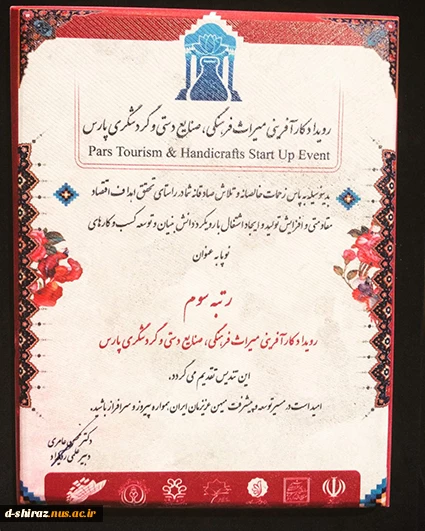 رویداد کارآفرینی میراث فرهنگی، صنایع دستی و گردشگری پارس
Pars Tourism & Handicrafts Start Up Event
بدینوسیله به پاس زحمات خالصانه و تلاش صادقانه شما در راستای تحقق اهداف اقتصاد
مقاومتی و افزایش تولید و ایجاد اشتغال با رویکرد دانش بنیان و توسعه کسب و کارهای
نوپا به عنوان
رتبه سوم
رویداد کارآفرینی میراث فرهنگی، صنایع دستی و گردشگری پارس
این تندیس تقدیم می گردد.
امید است در مسیر توسعه و پیشرفت میهن عزیزمان ایران همواره پیروز و سرافراز باشید.
دکتر عامری
دبیر علمی رویداد
d-shiraz.nus.ac.ir